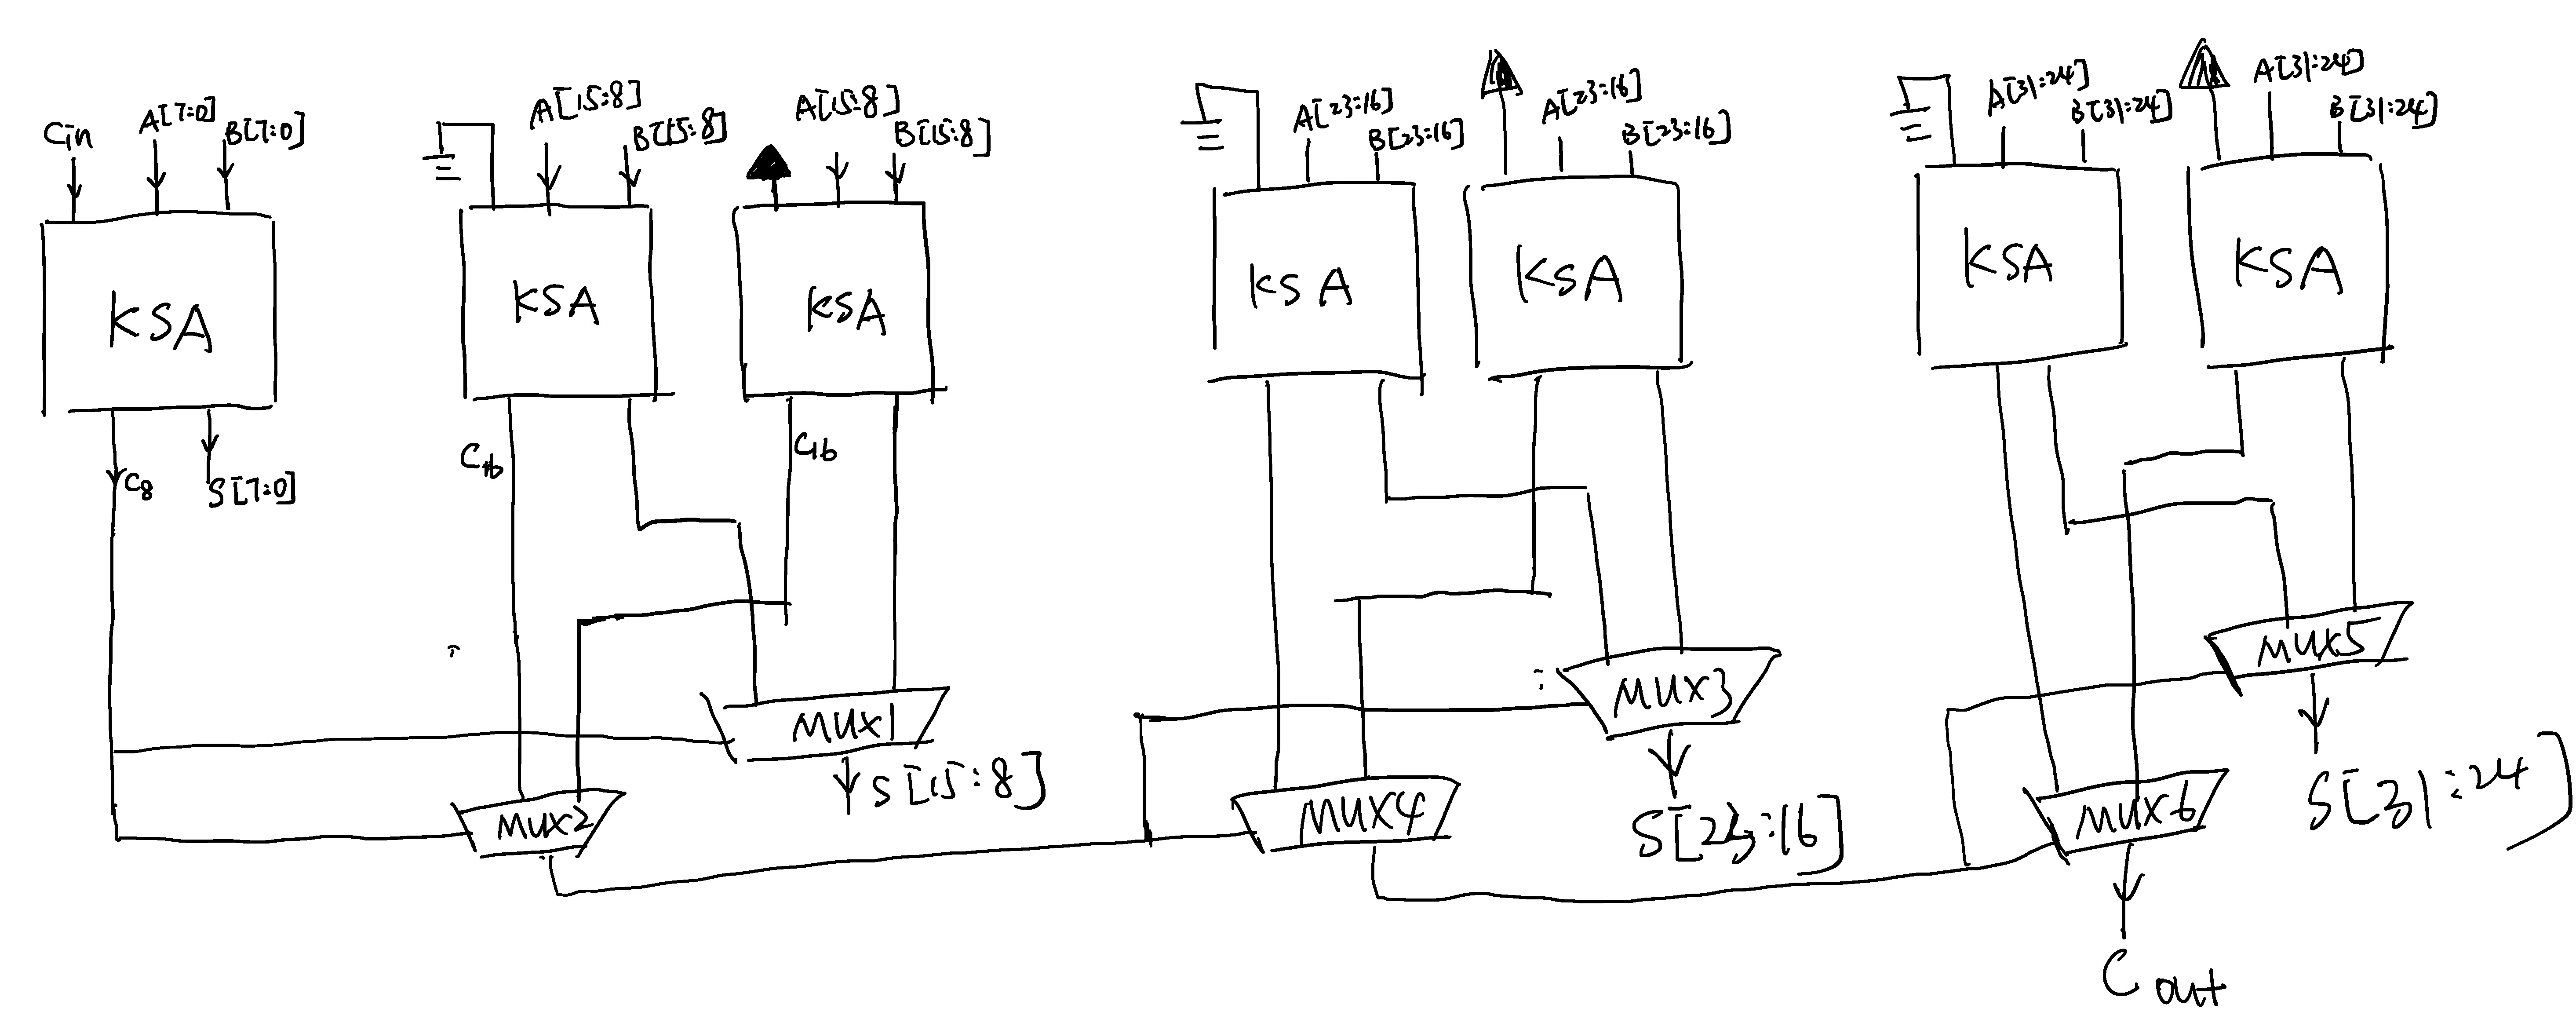 Cin
A[7:0]
B[7:0]
KSA
C8
S[7:0]
A[15:8]
B[15:8]
KSA
C16
A[15:8]
B[15:8]
KSA
C16
MUX1
S[15:8]
MUX2
A[23:16]
B[23:16]
KSA
A[23:16]
B[23:16]
KSA
MUX3
S[23:16]
MUX4
A[31:24]
B[31:24]
KSA
A[31:24]
B[31:24]
KSA
MUX5
S[31:24]
MUX6
Cout